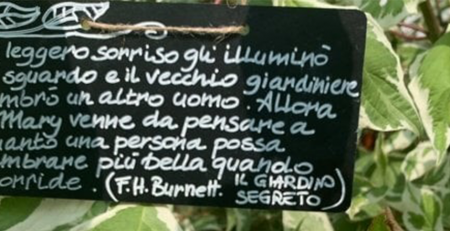 leggero sorriso gli illuminò
sguardo e il vecchio giardiniere
mbrò un altro uomo. Allora
Mary venne da pensare a
uanto una persona possa
mbrare più bella quando
orride. (F.H. Burnett. IL GIARDINO
SEGRETO)